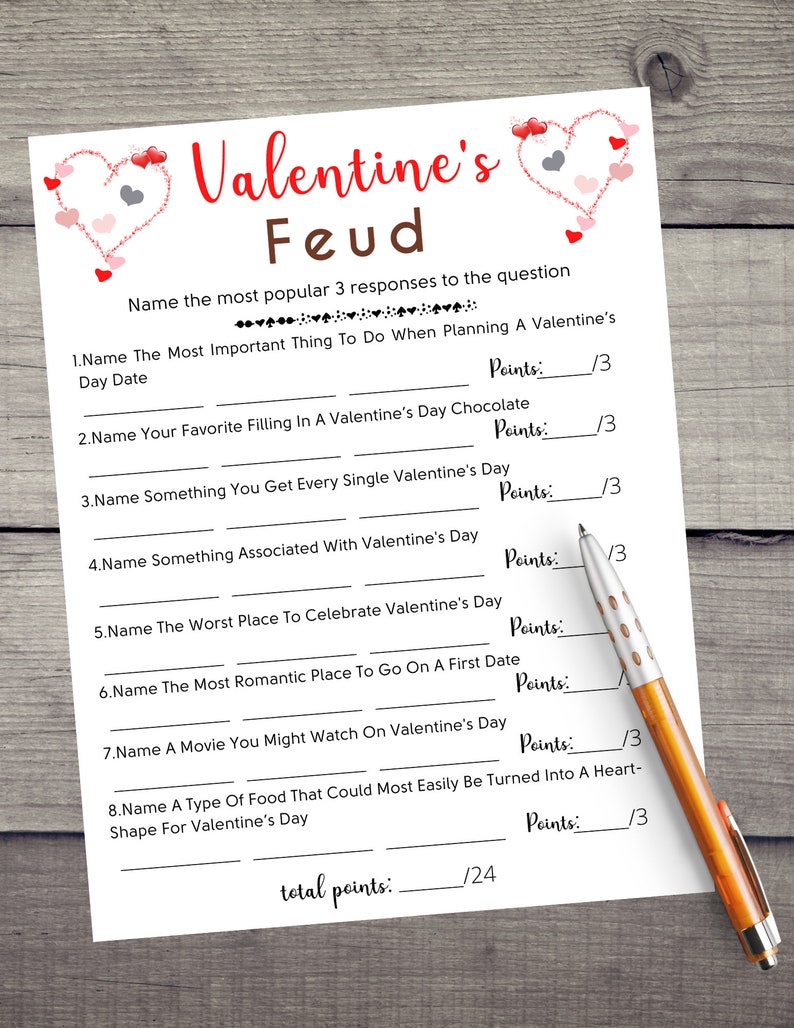 Valentine's
Feud
Name the most popular 3 responses to the question
1.Name The Most Important Thing To Do When Planning A Valentine's
Day Date
Points:_____/3
2.Name Your Favorite Filling In A Valentine's Day Chocolate
Points:_____/3
3.Name Something You Get Every Single Valentine's Day
Points:_____/3
4.Name Something Associated With Valentine's Day
Points:_____/3
5.Name The Worst Place To Celebrate Valentine's Day
Points:_____
6.Name The Most Romantic Place To Go On A First Date
Points:_____/
7.Name A Movie You Might Watch On Valentine's Day
Points:_____/3
8.Name A Type Of Food That Could Most Easily Be Turned Into A Heart-
Shape For Valentine's Day
Points:_____/3
total points: ______/24